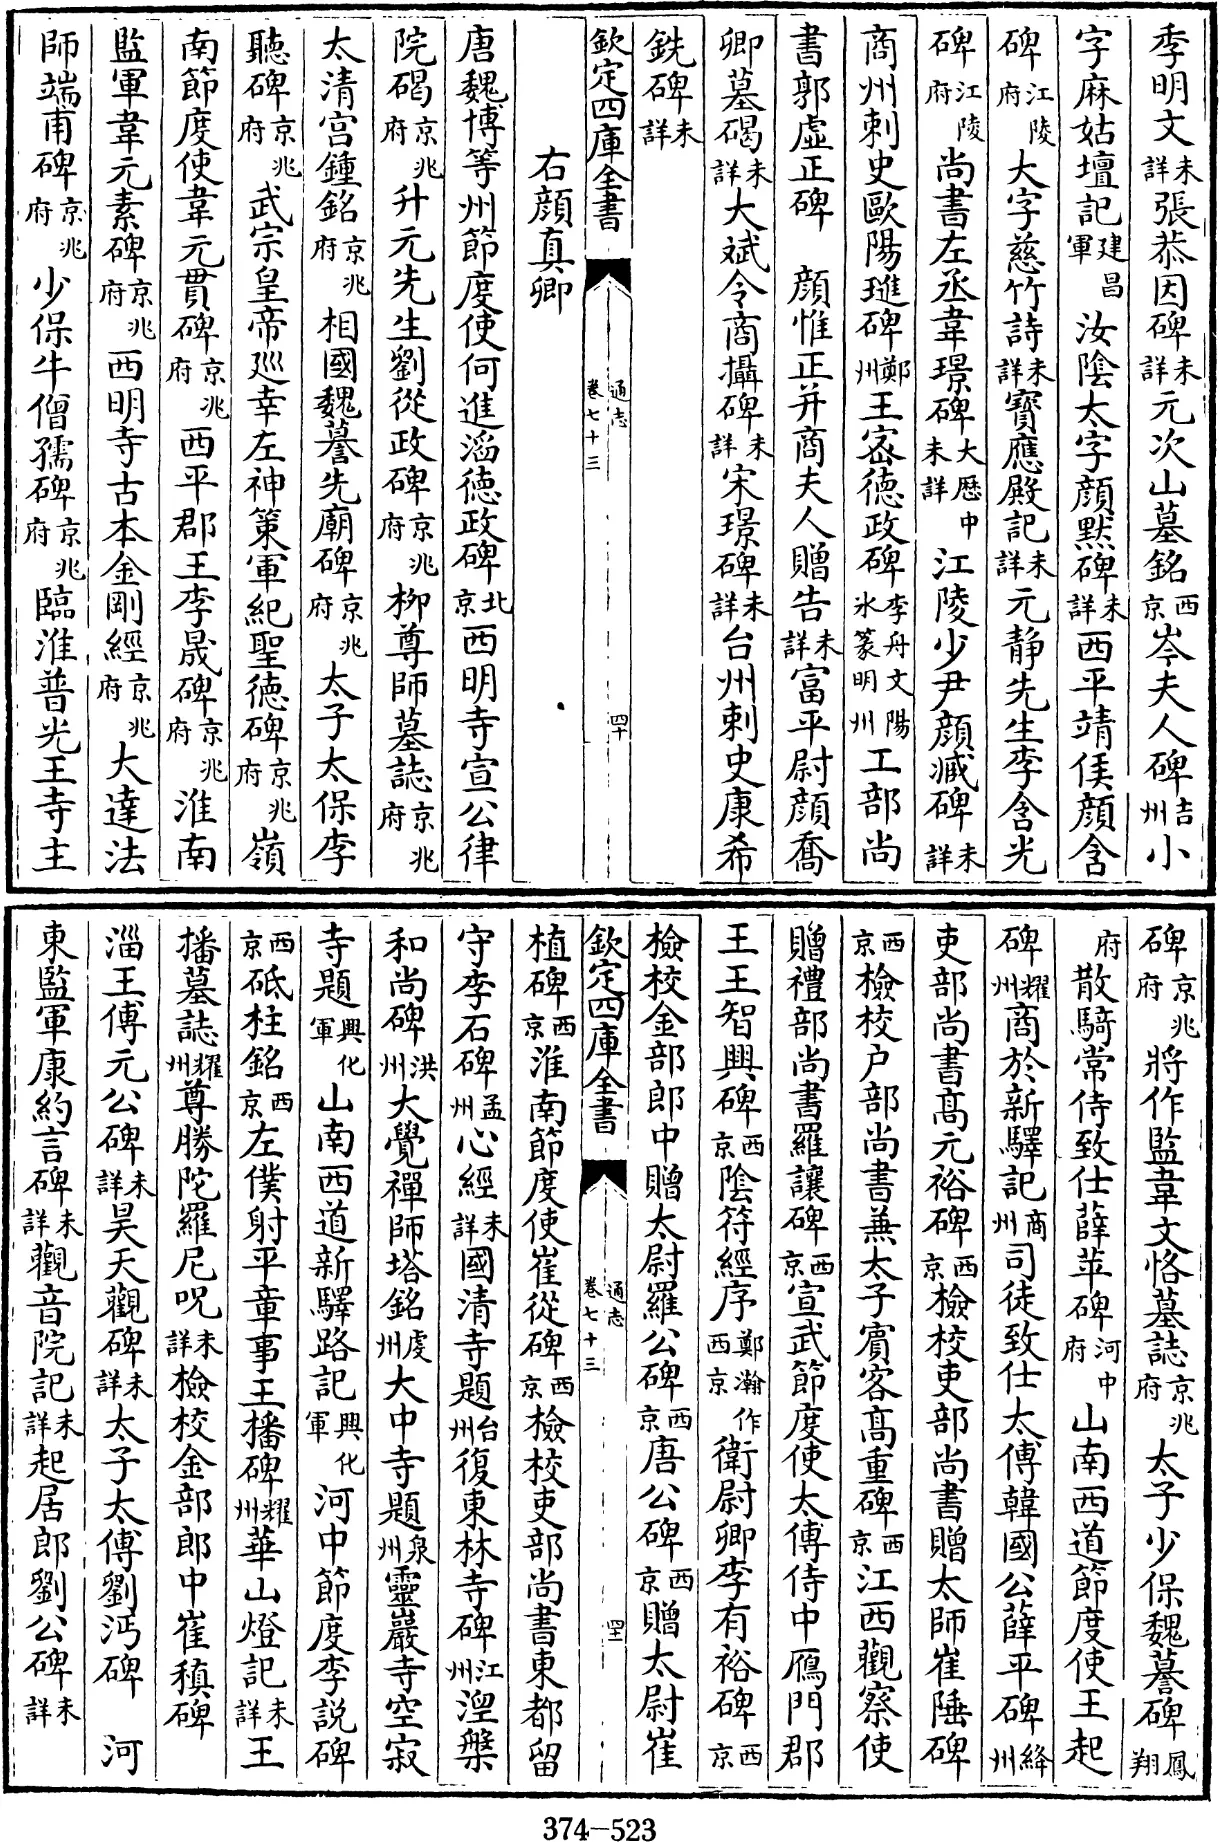 季明文未詳張恭因碑未詳元次山墓銘西京岑夫人碑吉州小
字麻姑壇記建昌軍汝陰太字顔黙碑未詳西平靖侯顔含
碑江陵府大字慈竹詩未詳寳應殿記未詳元静先生李含光
碑江陵府尚書左丞韋璟碑大厯中未詳江陵少尹顔臧碑未詳
商州刺史歐陽琟碑鄭州王宻德政碑李舟文陽氷篆明州工部尚
書郭虚正碑 顔惟正并商夫人贈告未詳富平尉顔喬
卿墓碣未詳大斌令商攝碑未詳宋璟碑未詳台州刺史康希
銑碑未詳
欽定四庫全書 通志 卷七十三 四十
右顔真卿
唐魏博等州節度使何進滔德政碑北京西明寺宣公律
院碣京兆府升元先生劉從政碑京兆府栁尊師墓誌京兆府
太清宫鍾銘京兆府相國魏謩先廟碑京兆府太子太保李
聽碑京兆府武宗皇帝廵幸左神策軍紀聖德碑京兆府嶺
南節度使韋元貫碑京兆府西平郡王李晟碑京兆府淮南
監軍韋元素碑京兆府西明寺古本金剛經京兆府大達法
師端甫碑京兆府少保牛僧孺碑京兆府臨淮普光王寺主
碑京兆府將作監韋文恪墓誌京兆府太子少保魏謩碑鳳翔
府散騎常侍致仕薛苹碑河中府山南西道節度使王起
碑耀州商於新驛記商州司徒致仕太傅韓國公薛平碑絳州
吏部尚書髙元裕碑西京檢校吏部尚書贈太師崔陲碑
西京檢校户部尚書兼太子賓客髙重碑西京江西觀察使
贈禮部尚書羅讓碑西京宣武節度使太傅侍中鴈門郡
王王智興碑西京陰符經序鄭瀚作西京衛尉卿李有裕碑西京
檢校金部郎中贈太尉羅公碑西京唐公碑西京贈太尉崔
欽定四庫全書 通志 卷七十三 四十一
植碑西京淮南節度使崔從碑西京檢校吏部尚書東都留
守李石碑孟州心經未詳國清寺題台州復東林寺碑江州湼槃
和尚碑洪州大覺禪師塔銘虔州大中寺題泉州靈巖寺空寂
寺題興化軍山南西道新驛路記興化軍河中節度李説碑
西京砥柱銘西京左僕射平章事王播碑耀州華山燈記未詳王
播墓誌耀州尊勝陀羅尼呪未詳檢校金部郎中崔稹碑
淄王傅元公碑未詳昊天觀碑未詳太子太傅劉沔碑 河
東監軍康約言碑未詳觀音院記未詳起居郎劉公碑未詳
374-523